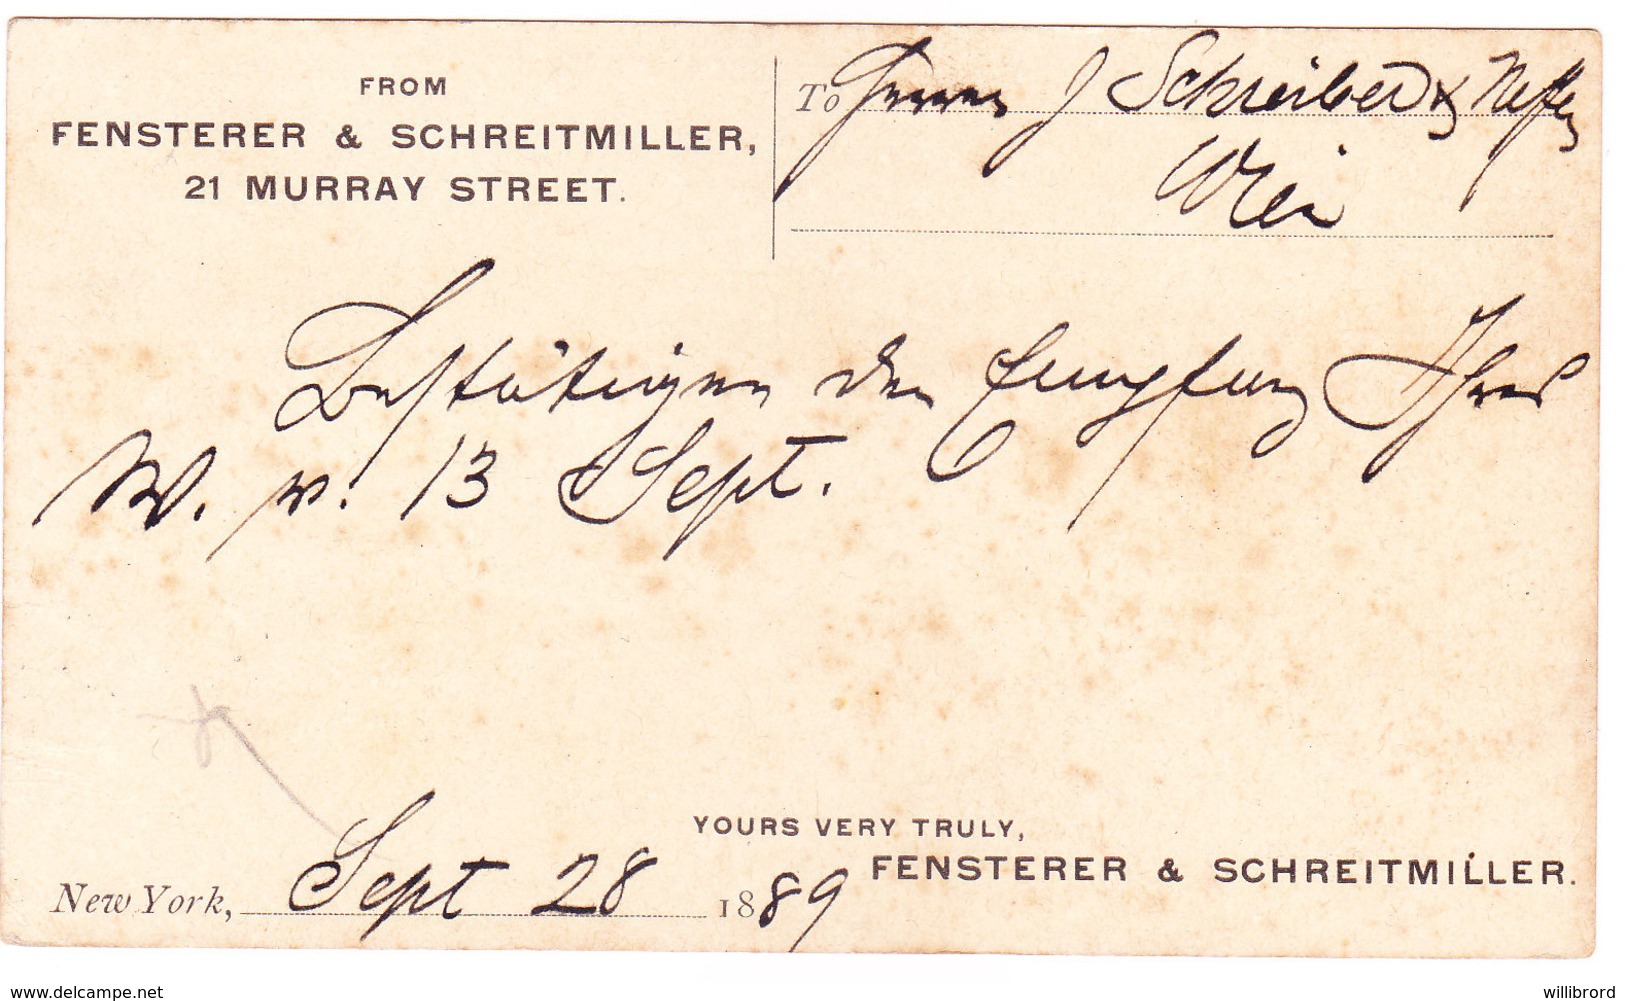 FROM
FENSTERER & SCHREITMILLER,
21 MURRAY STREET.
To Herren J Schreiber & Neffen
Wien
Bestätigen den Empfang Ihres
W. v. 13 Sept.
YOURS VERY TRULY,
FENSTERER & SCHREITMILLER.
New York, Sept 28 1889
www.delcampe.net
willibrord